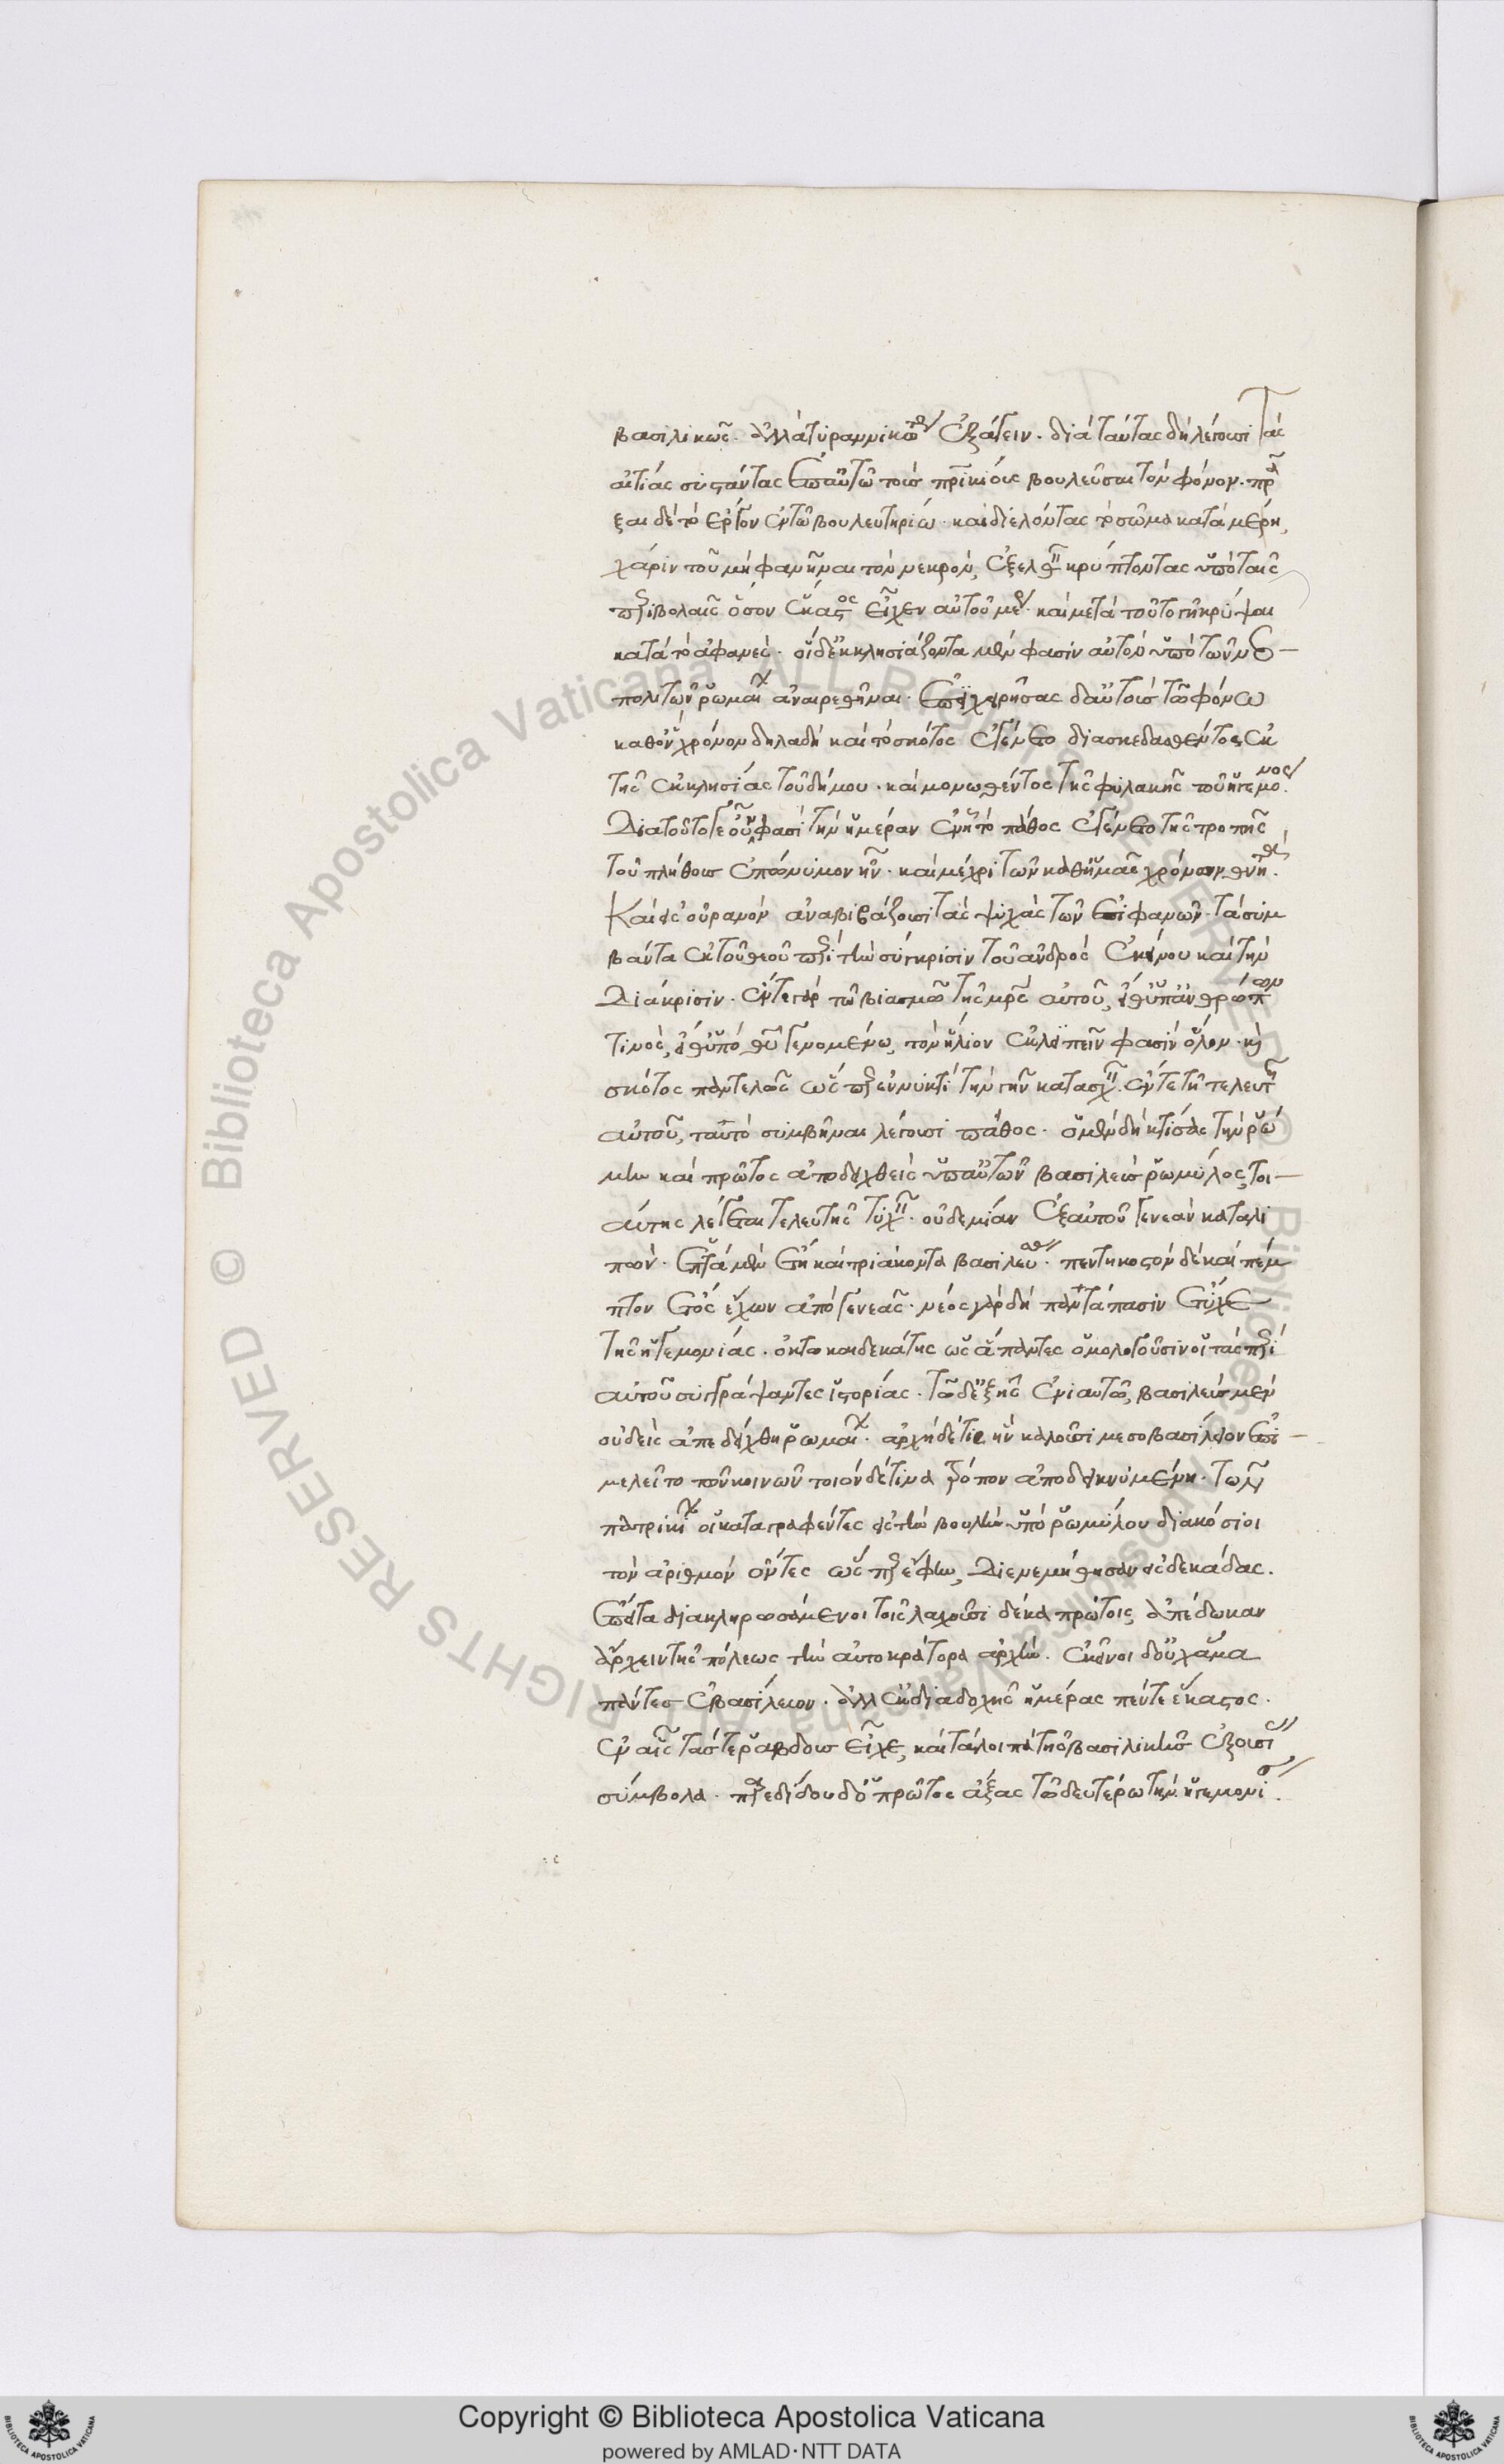 βασιλικῶς. ἀλλὰ τυραννικώτερον ἐξάγειν. διὰ ταύτας δὴ λέγουσι τὰς
αἰτίας συστάντας ἐπ' αὐτῷ τοὺς πρικίους βουλεῦσαι τὸν φόνον. πρᾶ
ξαι δὲ τὸ ἔργον ἐν τῷ βουλευτηρίῳ. καὶ διελόντας τὸ σῶμα κατὰ μέρη,
χάριν τοῦ μὴ φανῆναι τὸν νεκρόν, ἐξελθεῖν κρύπτοντας ὑπὸ ταῖς
περιβολαῖς ὅσον ἕκαστος εἶχεν αὐτοῦ μέρος. καὶ μετὰ τοῦτο γῇ κρύψαι
κατὰ τὸ ἀφανές. οἱ δ' ἐκκλησιάζοντα μέν φασιν αὐτὸν ὑπὸ τῶν νεο
πολιτῶν ῥωμαίων ἀναιρεθῆναι. ἐπιχειρῆσας δ' αὐτοὺς τῷ φόνῳ
καθ' ὃν χρόνον δηλαδὴ καὶ τὸ σκότος ἐγένετο διασκεδασθέντος ἐκ
τῆς ἐκκλησίας τοῦ δήμου. καὶ μονωθέντος τῆς φυλακῆς τοῦ ἡγεμόνος.
διὰ τοῦτό γε οὖν φασὶ τὴν ἡμέραν ἐν ᾗ τὸ πάθος ἐγένετο τῆς τροπῆς
τοῦ πλήθους ἐπώνυμον ἦν. καὶ μέχρι τῶν καθ' ἡμᾶς χρόνων
Καὶ εἰς οὐρανὸν ἀναβιβάζουσι τὰς ψυχὰς τῶν ἐπιφανῶν. τὰ συμ
βάντα ἐκ τοῦ θεοῦ περὶ τὴν σύγκρισιν τοῦ ἀνδρὸς ἐκείνου καὶ τὴν
διάκρισιν. ἔν τε γὰρ τῷ βιασμῷ τῆς μρς αὐτοῦ, εἴθ' ὑπ' ἀνθρώπων
τινὸς, εἴθ' ὑπὸ θυ γενομένῳ, τὸν ἥλιον ἐκλειπεῖν φασὶν ὅλον. καὶ
σκότος παντελῶς ὡς περ ἐν νυκτὶ τὴν γῆν κατασχεῖν. ἔν τε τῇ τελευτῇ
αὐτοῦ, ταὐτὸ συμβῆναι λέγουσι πάθος. ὁ μὲν δὴ κτίσας τὴν ῥώ
μην καὶ πρῶτος ἀποδειχθεὶς ὑπ' αὐτῶν βασιλεὺς ῥωμύλος, τοι
αύτης λέγεται τελευτῆς τυχεῖν. οὐδεμίαν ἐξ αὐτοῦ γενεὰν καταλι
πών. ἑπτὰ μὲν ἔτη καὶ τριάκοντα βασιλεύσας. πεντηκοστὸν δὲ καὶ πέμ
πτον ἔτος ἔχων ἀπὸ γενεᾶς. νέος γὰρ δὴ παντάπασιν ἔτυχε
τῆς ἡγεμονίας. ὀκτωκαιδεκάτης ὡς ἅπαντες ὁμολογοῦσιν οἱ τὰς περὶ
αὐτοῦ συγγράψαντες ἱστορίας. τῷ δ' ἑξῆς ἐνιαυτῷ, βασιλεὺς μὲν
οὐδεὶς ἀπεδείχθη ῥωμαίων. ἀρχὴ δέ τις ἣν καλοῦσι μεσοβασίλειον ἐπε
μελεῖτο τῶν κοινῶν τοιόνδέ τινα τρόπον ἀποδεικνυμένη. τῶν
πατρικίων οἱ καταγραφέντες εἰς τὴν βουλὴν ὑπὸ ῥωμύλου διακόσιοι
τὸν ἀριθμὸν ὄντες ὡς περ ἔφην, διενεμήθησαν εἰς δεκάδας.
ἔπειτα διακληρωσάμενοι τοῖς λαχοῦσι δέκα πρώτοις ἀπέδωκαν
ἄρχειν τῆς πόλεως τὴν αὐτοκράτορα ἀρχήν. ἐκεῖνοι δ' οὐχ ἅμα
πάντες ἐβασίλευον. ἀλλ' ἐκ διαδοχῆς ἡμέρας πέντε ἕκαστος.
ἐν αἷς τάς τε ῥάβδους εἶχε, καὶ τὰ λοιπὰ τῆς βασιλικῆς ἐξουσίας
σύμβολα. παρεδίδου δ' ὁ πρῶτος ἄξας τῷ δευτέρῳ τὴν ἡγεμονίαν.
Copyright © Biblioteca Apostolica Vaticana
powered by AMLAD·NTT DATA